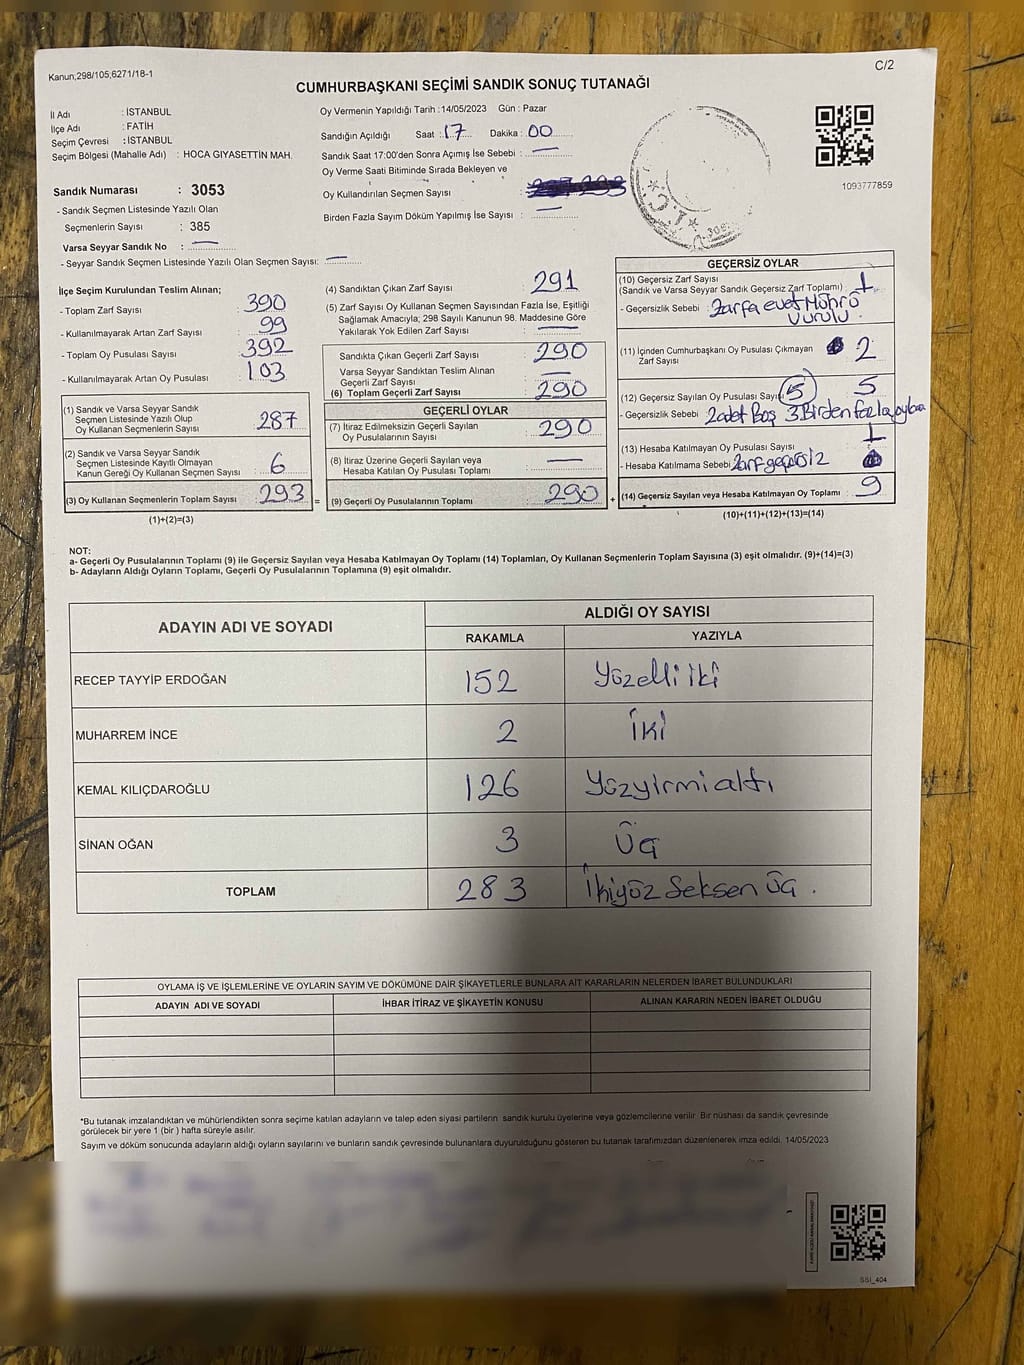 Kanun,298/105;6271/18-1
C/2
CUMHURBAŞKANI SEÇİMİ SANDIK SONUÇ TUTANAĞI
İl Adı : İSTANBUL
İlçe Adı : FATİH
Seçim Çevresi : İSTANBUL
Seçim Bölgesi (Mahalle Adı) : HOCA GIYASETTİN MAH.
Sandık Numarası : 3053
- Sandık Seçmen Listesinde Yazılı Olan
Seçmenlerin Sayısı : 385
Varsa Seyyar Sandık No :
- Seyyar Sandık Seçmen Listesinde Yazılı Olan Seçmen Sayısı:
Oy Vermenin Yapıldığı Tarih :14/05/2023 Gün : Pazar
Sandığın Açıldığı Saat : 17 Dakika : 00
Sandık Saat 17:00'den Sonra Açımış İse Sebebi :
Oy Verme Saati Bitiminde Sırada Bekleyen ve
Oy Kullandırılan Seçmen Sayısı :
Birden Fazla Sayım Döküm Yapılmış İse Sayısı :
T.C.
1093777859
İlçe Seçim Kurulundan Teslim Alınan;
- Toplam Zarf Sayısı : 390
- Kullanılmayarak Artan Zarf Sayısı : 99
- Toplam Oy Pusulası Sayısı : 392
- Kullanılmayarak Artan Oy Pusulası : 103
(1) Sandık ve Varsa Seyyar Sandık
Seçmen Listesinde Yazılı Olup
Oy Kullanan Seçmenlerin Sayısı : 287
(2) Sandık ve Varsa Seyyar Sandık
Seçmen Listesinde Kayıtlı Olmayan
Kanun Gereği Oy Kullanan Seçmen Sayısı : 6
(3) Oy Kullanan Seçmenlerin Toplam Sayısı : 293
(1)+(2)=(3)
(4) Sandıktan Çıkan Zarf Sayısı : 291
(5) Zarf Sayısı Oy Kullanan Seçmen Sayısından Fazla İse, Eşitliği
Sağlamak Amacıyla; 298 Sayılı Kanunun 98. Maddesine Göre
Yakılarak Yok Edilen Zarf Sayısı :
Sandıkta Çıkan Geçerli Zarf Sayısı : 290
Varsa Seyyar Sandıktan Teslim Alınan
Geçerli Zarf Sayısı :
(6) Toplam Geçerli Zarf Sayısı : 290
GEÇERLİ OYLAR
(7) İtiraz Edilmeksizin Geçerli Sayılan
Oy Pusulalarının Sayısı : 290
(8) İtiraz Üzerine Geçerli Sayılan veya
Hesaba Katılan Oy Pusulası Toplamı :
= (9) Geçerli Oy Pusulalarının Toplamı : 290
GEÇERSİZ OYLAR
(10) Geçersiz Zarf Sayısı
(Sandık ve Varsa Seyyar Sandık Geçersiz Zarf Toplamı) : 1
- Geçersizlik Sebebi : Zarfa evet Mührü
Vurulu.
(11) İçinden Cumhurbaşkanı Oy Pusulası Çıkmayan
Zarf Sayısı 2
(12) Geçersiz Sayılan Oy Pusulası Sayısı 5 5
- Geçersizlik Sebebi : 2 adet Boş 3 Birden fazla oylama
(13) Hesaba Katılmayan Oy Pusulası Sayısı 1
- Hesaba Katılmama Sebebi : Zarf geçersiz
+ (14) Geçersiz Sayılan veya Hesaba Katılmayan Oy Toplamı : 9
(10)+(11)+(12)+(13)=(14)
NOT:
a- Geçerli Oy Pusulalarının Toplamı (9) ile Geçersiz Sayılan veya Hesaba Katılmayan Oy Toplamı (14) Toplamları, Oy Kullanan Seçmenlerin Toplam Sayısına (3) eşit olmalıdır. (9)+(14)=(3)
b- Adayların Aldığı Oyların Toplamı, Geçerli Oy Pusulalarının Toplamına (9) eşit olmalıdır.
ADAYIN ADI VE SOYADI
ALDIĞI OY SAYISI
RAKAMLA YAZIYLA
RECEP TAYYİP ERDOĞAN 152 Yüzelli iki
MUHARREM İNCE 2 İki
KEMAL KILIÇDAROĞLU 126 Yüzyirmi altı
SİNAN OĞAN 3 Üç
TOPLAM 283 İkiyüz Seksen Üç .
OYLAMA İŞ VE İŞLEMLERİNE VE OYLARIN SAYIM VE DÖKÜMÜNE DAİR ŞİKAYETLERLE BUNLARA AİT KARARLARIN NELERDEN İBARET BULUNDUKLARI
ADAYIN ADI VE SOYADI İHBAR İTİRAZ VE ŞİKAYETİN KONUSU ALINAN KARARIN NEDEN İBARET OLDUĞU
*Bu tutanak imzalandıktan ve mühürlendikten sonra seçime katılan adayların ve talep eden siyasi partilerin sandık kurulu üyelerine veya gözlemcilerine verilir. Bir nüshası da sandık çevresinde
görülecek bir yere 1 (bir ) hafta süreyle asılır.
Sayım ve döküm sonucunda adayların aldığı oyların sayılarını ve bunların sandık çevresinde bulunanlara duyurulduğunu gösteren bu tutanak tarafımızdan düzenlenerek imza edildi. 14/05/2023
SSİ_404